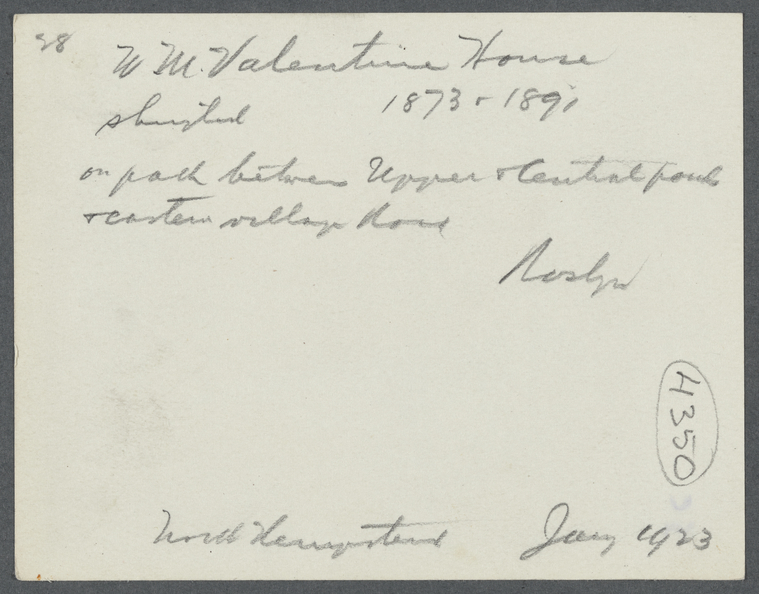 28
W M. Valentine House
shingled 1873 + 1891
on path between Upper + Central pond
+ eastern village Road
Roslyn
4350
North Hempstead Jany 1923